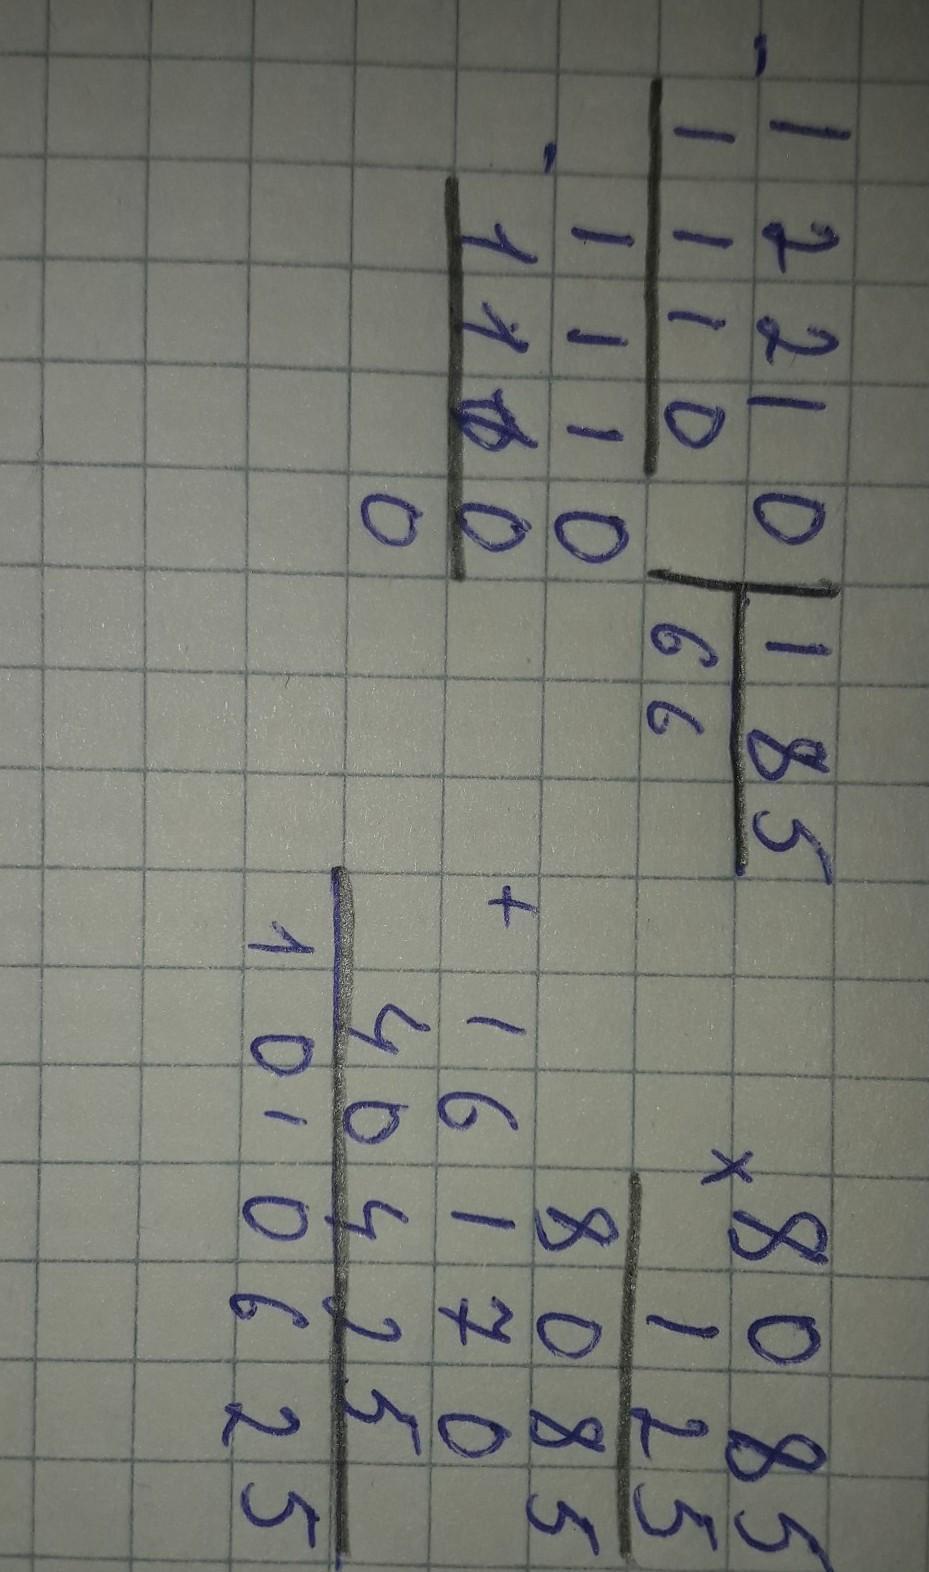 - 12210 | 185
1110
66
- 1110
1110
0
× 8085
125
8085
+ 16170
40425
1010625